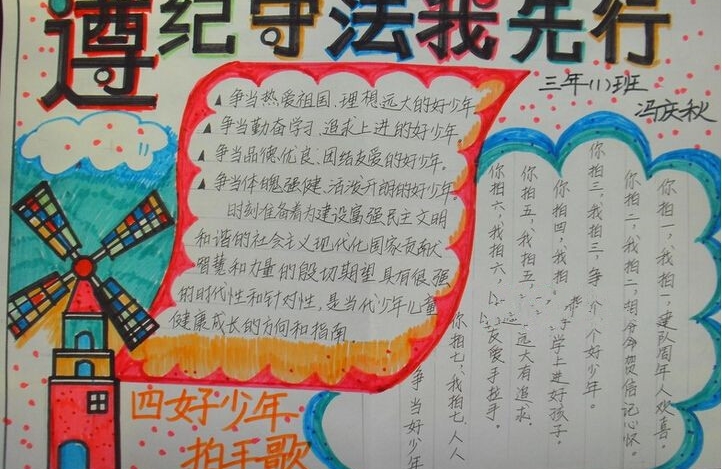 遵纪守法我先行
三年(1)班
冯庆秋
▲争当热爱祖国、理想远大的好少年
▲争当勤奋学习、追求上进的好少年。
▲争当品德优良、团结友爱的好少年。
▲争当体魄强健、活泼开朗的好少年。
时刻准备着为建设富强民主文明
和谐的社会主义现代化国家贡献
智慧和力量的殷切期望具有很强
的时代性和针对性,是当代少年儿童
健康成长的方向和指南。
四好少年
拍手歌
你拍一,我拍一,建队周年人欢喜。
你拍二,我拍二,胡爷爷贺信记心怀。
你拍三,我拍三,争 个个好少年。
你拍四,我拍 学上进好孩子。
你拍五,我拍五, 远大有追求。
你拍六,我拍六, 友爱手拉手。
你拍七,我拍七,人人
争当好少年